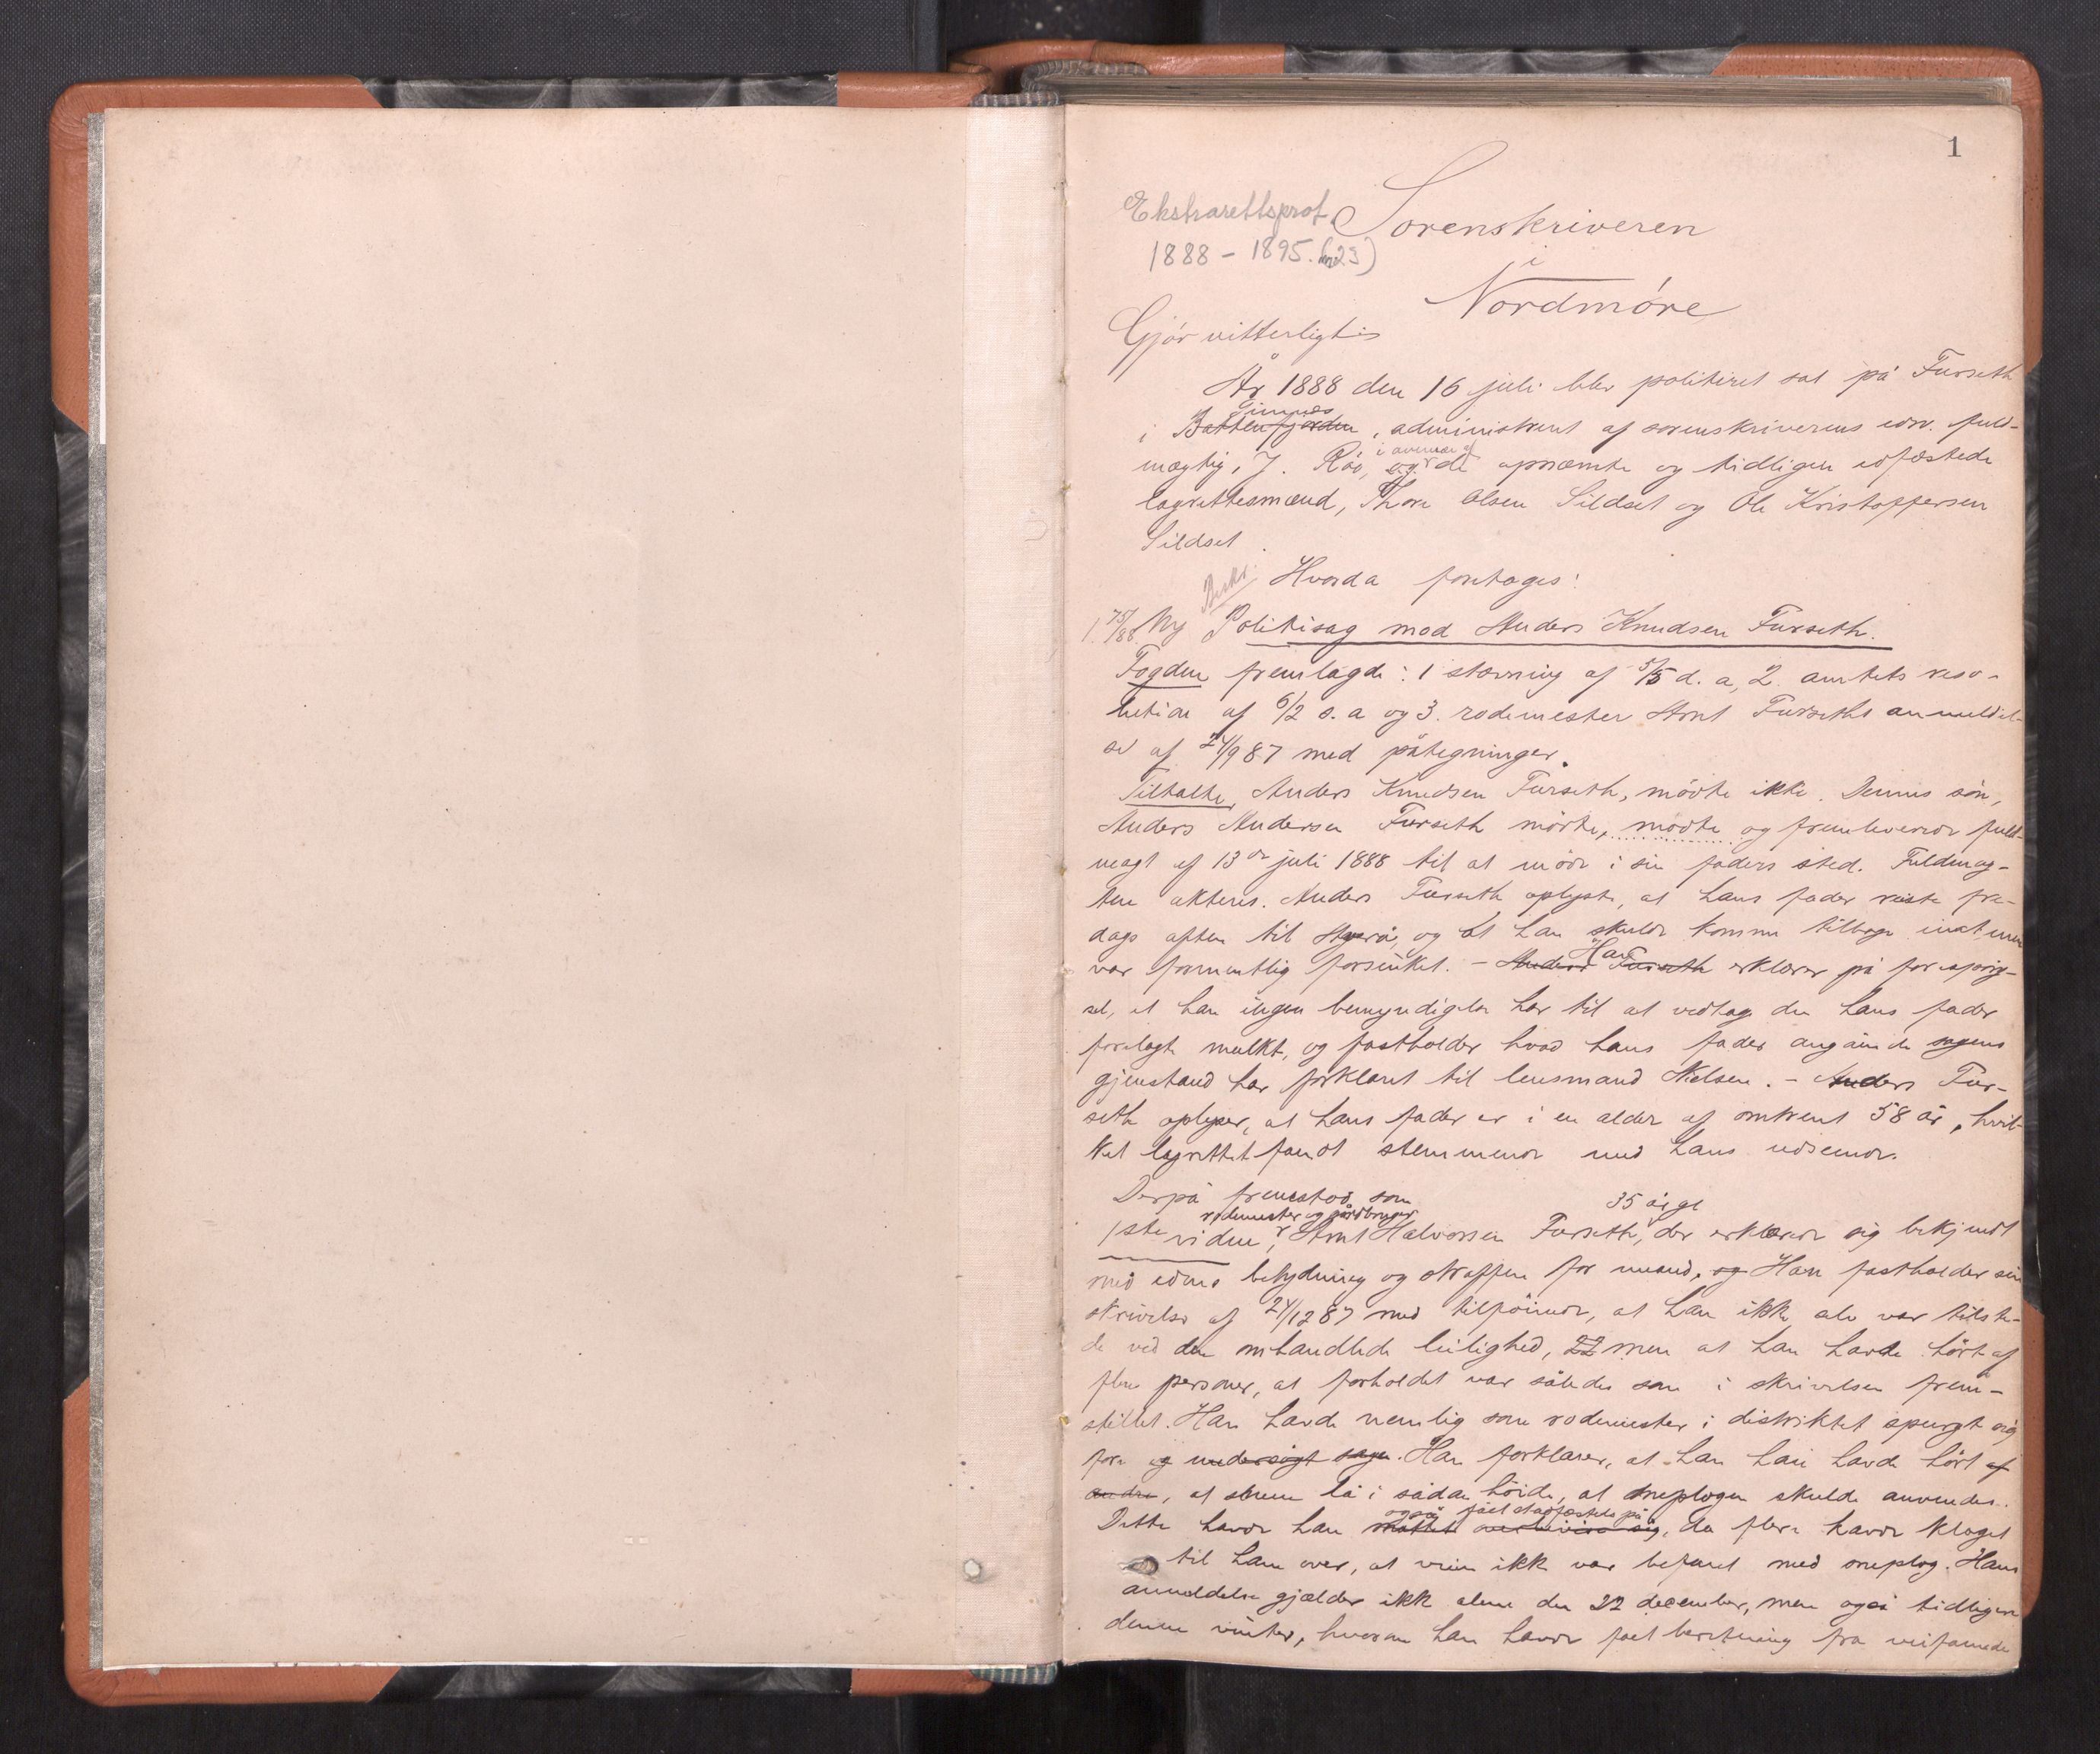 1
Ekstrarettsprot.
1888 - 1895.
Sorenskriveren
i
Nordmöre
Gjör vitterligt:
År 1888 den 16 juli blev politiret sat på Furseth
i Battenfjorden, administreret af sorenskriverens edsv. fuld-
mægtig, J. Röö, og de opnævnte og tidligere edfæstede
lagrettesmænd, Thore Olsen Sildset og Ole Kristoffersen
Sildset.
Hvorda foretoges:
1. 75/88 Ny Politisag mod Anders Knudsen Furseth.
Fogden fremlagde: 1 stævning af 5/5 d. a, 2. amtets reso-
lution af 6/2 s. a og 3. rodemester Arnt Furseths anmeldel-
se af 24/9 87 med påtegninger.
Tiltalte, Anders Knudsen Furseth, mödte ikke. Dennes sön,
Anders Andersen Furseth mödte, mödte og fremleverede fuld-
magt af 13de juli 1888 til at möde i sin faders sted. Fuldmag-
ten akteres. Anders Furseth oplyste, at hans fader reiste fre-
dags aften til og at han skulde komme tilbage inat men
Han
var formentlig forsinket. - Anders Furseth erklærer på forespörg-
sel, at han ingen bemyndigelse har til at vedtage den hans fader
forelagte mulkt, og fastholder hvad hans fader angående sagens
gjenstand har forklaret til lensmand Nielsen. - Anders Fur-
seth oplyser, at hans fader er i en alder af omtrent 58 år, hvil-
ket lagrettet fandt stemmende med hans udseende.
Derpå fremstod som
rodemester og gårdbruger 35 årige
1ste vidne, Arnt Halvorsen Furseth, der erklærede sig bekjendt
med edens betydning og straffen for mened, og Han fastholder sin
skrivelse af 24/12 87 med tilföiende, at han ikke selv var tilste-
de ved den omhandlede leilighed, 22 men at han havde hört af
flere personer, at forholdet var således som i skrivelsen frem-
stillet. Han havde nemlig som rodemester i distriktet spurgt sig
for og undersögt sagen. Han forklarer, at han havde hört af
andre, at sneen lå i sådan höide, at sneplogen skulde anvendes.
også fået stadfæstelse på
Dette havde han måttet overbevise sig, da flere havde klaget
til ham over, at veien ikke var befaret med sneplog. Hans
anmeldelse gjælder ikke alene den 22 december, men også tidligere
denne vinter, hvorom han havde fået beretning fra veifarende